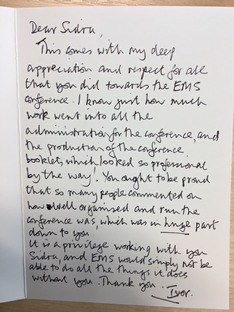 Dear Sidra,
This comes with my deep
appreciation and respect for all
that you did towards the EMS
conference. I know just how much
work went into all the
administration for the conference, and
the production of the conference
booklet, which looked so professional
by the way! You ought to be proud
that so many people commented on
how well organised and run the
conference was, which was in huge part
down to you!
It is a privilege working with you
Sidra, and EMS would simply not be
able to do all the things it does
without you. Thank you. Ivor.